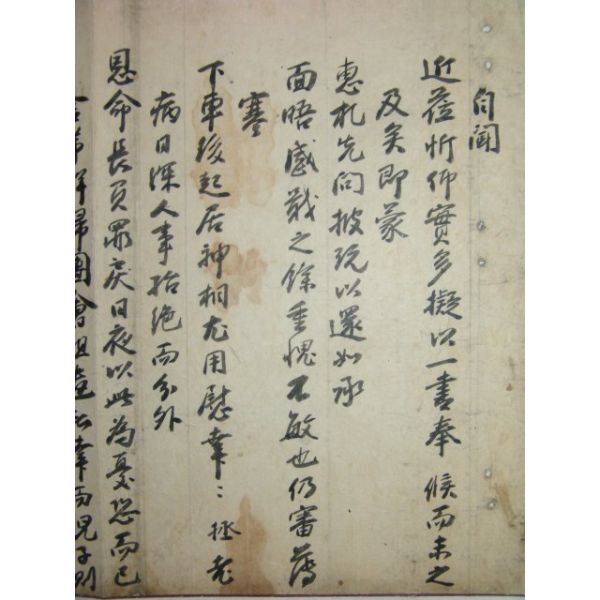 自聞
近莅忻仰實多擬以一書奉 候而未之
及矣即蒙
惠札先問披玩以還如承
面晤感戢之餘重愧不敏也仍審薄
寒
下車後起居神相尤用慰幸〻 拯老
病日深人事殆絶而分外
恩命長負罪戾日夜以此為憂恐而已
歸團會
幸而兒子則